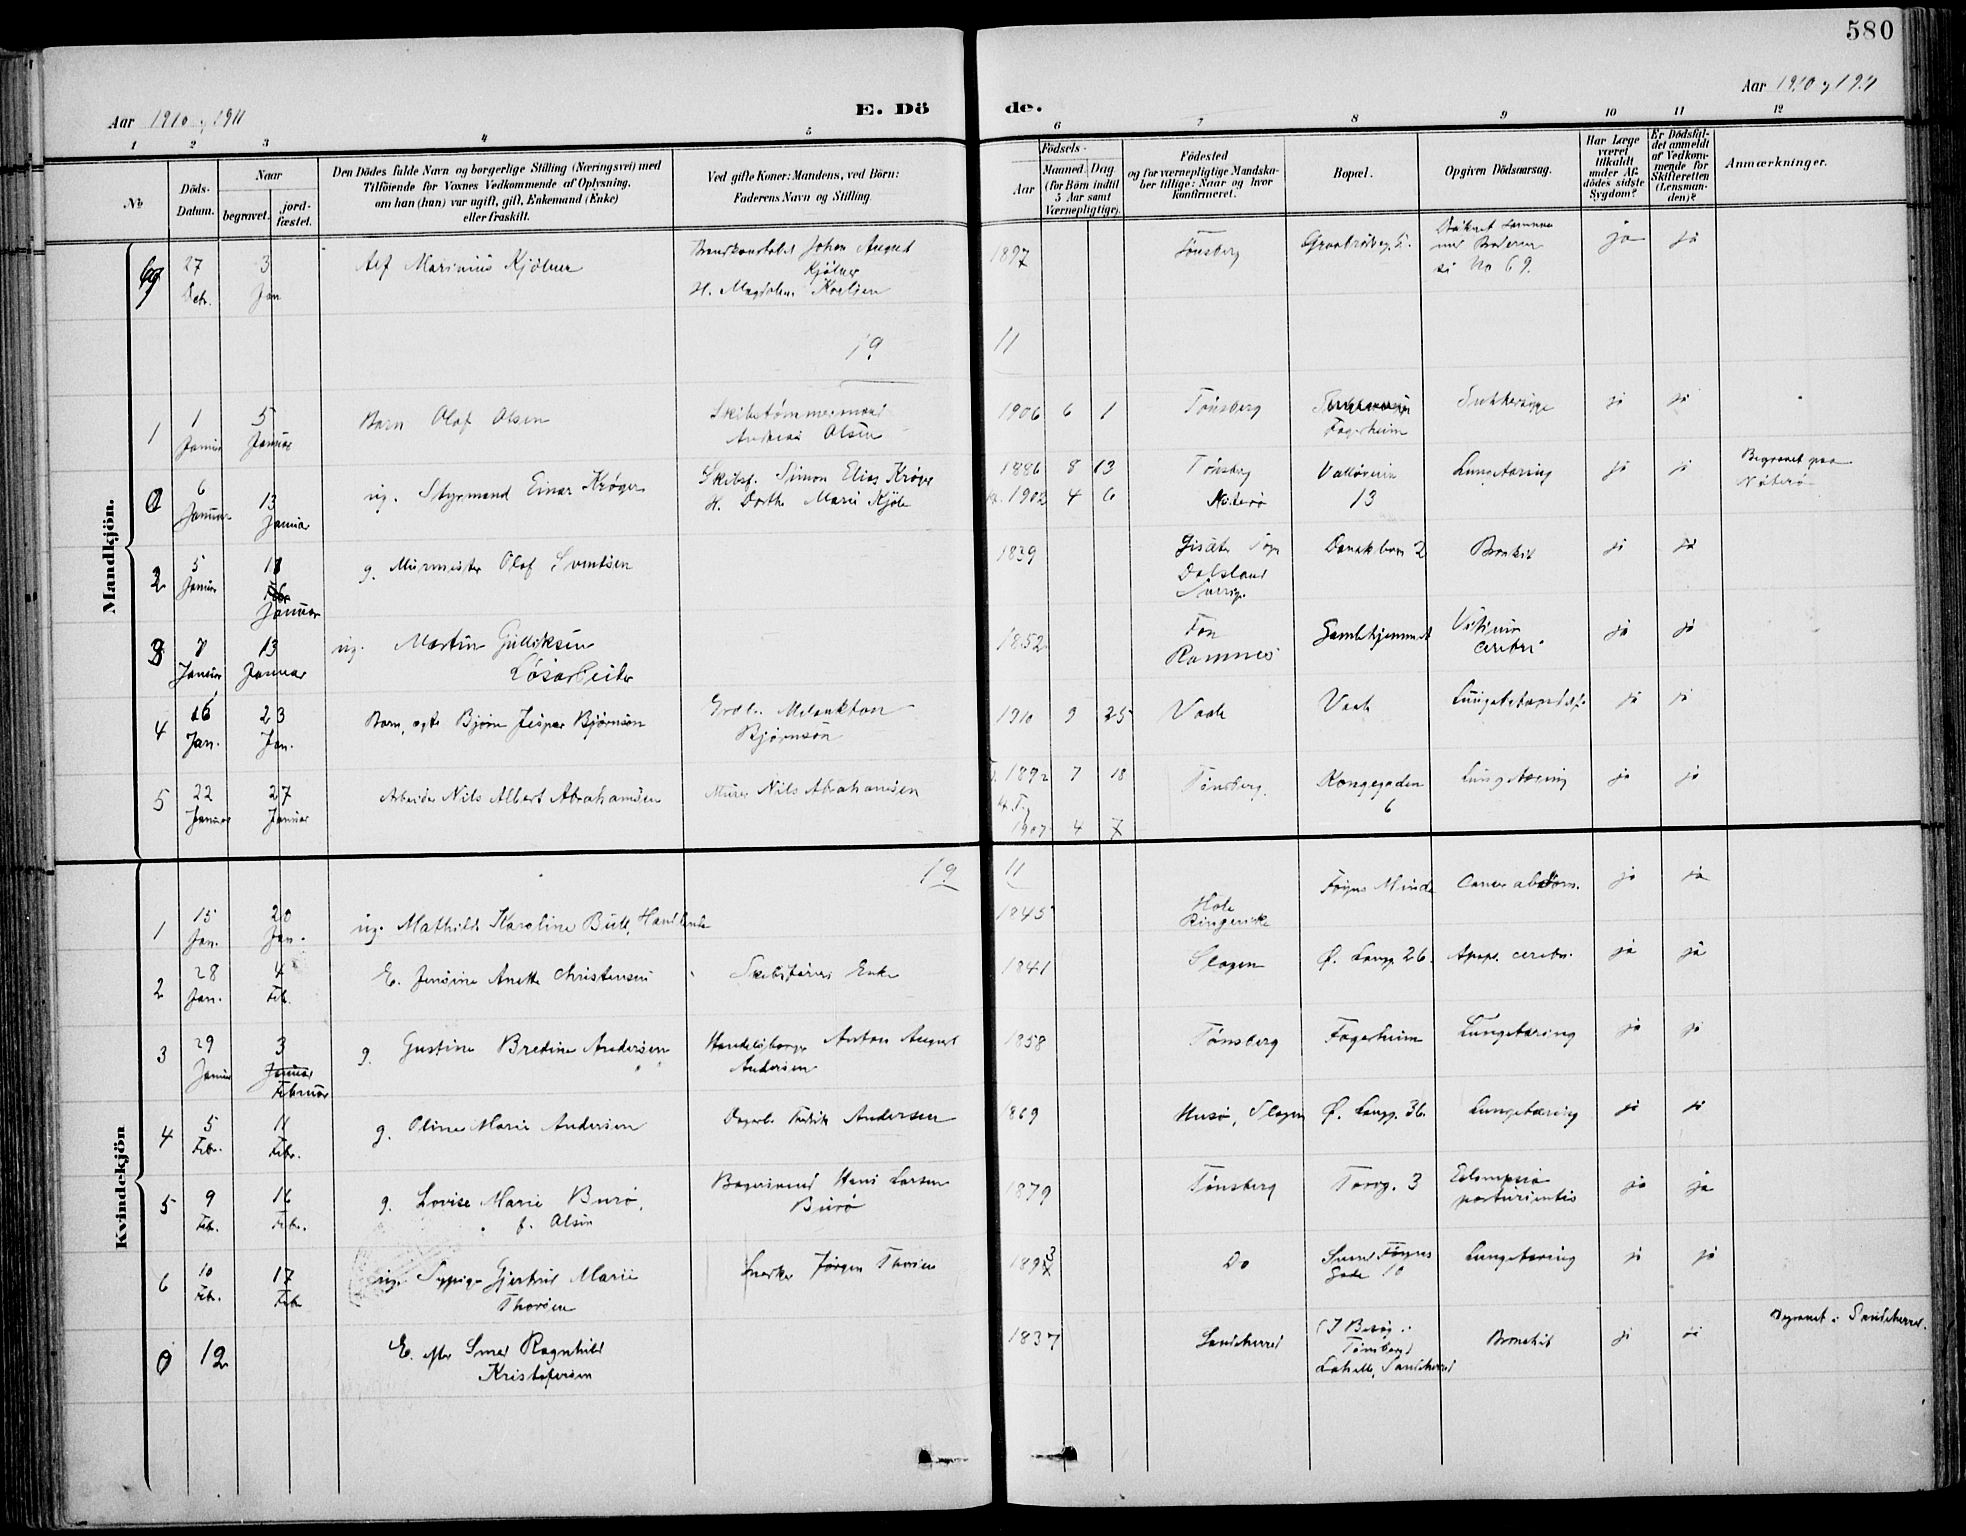 580
Aar 1910 og 1911
E. Dö
de.
Aar 1910 og 1911
1 2 3 4 5 6 7 8 9 10 11 12
№
Döds-
Datum.
Naar
begravet.
jord-
fæstet.
Den Dödes fulde Navn og borgerlige Stilling (Næringsvei) med
Tilföiende for Voxnes Vedkommende af Oplysning,
om han (hun) var ugift, gift, Enkemand (Enke)
eller fraskilt.
Ved gifte Koner: Mandens, ved Börn:
Faderens Navn og Stilling
Födsels-
Aar
Maaned. Dag
(for Börn indtil
5 Aar samt
Værnepligtige).
Födested
og for værnepligtige Mandska-
ber tillige: Naar og hvor
konfirmeret.
Bopæl.
Opgiven Dödsaarsag.
Har Læge
været
tilkaldt
under Af-
dödes sidste
Sygdom?
Er Dödsfal-
det anmeldt
af Vedkom-
mende for
Skifteretten
(Lensman-
den)?
Anmærkninger.
Mandkjön.
27 Debr. 3 Jan
Alf Marinius Kjölner
Brandkonstabel Johan August
Kjölner
H. Magdalena Karlsen
1897
Tönsberg
Druknet sammen
med Broderen
No 69.
ja ja
19 11
1 1 Januar 5 Januar
Barn Olaf Olsen
Skibstømmermand
Andreas Olsen
1906 6 1
Tönsberg
Fagerheim
Sukkersyge
ja ja
0 6 Januar 13 Januar
ug. Styrmand Einar Krøger
Skibsf. Simon Elias Krøger
H. Dorthe Marie Kjöle
1886 8 13
1902 4 6
Tönsberg
Nøterø
Valløveien
13
Lungetæring
ja ja
Begravet paa
Nøterø
2 5 Januar 11 Januar
g. Murmester Olaf Svendsen
1839
Dalsland
Sverige
Danskbom 2
Bronkit
ja ja
3 7 Januar 13 Januar
ug. Martin Gulliksen
Løsarbeider
1852
Fon
Ramnes
Gamlehjemmet
cerebri
ja ja
4 16 Jan. 23 Jan.
Barn, ægte Bjørn Jesper Bjørnsen
Melankton
Bjørnsøn
1910 9 25
Vaale
Vaale
ja ja
5 22 Januar 27 Januar
Arbeider Nils Albert Abrahamsen
Murer Nils Abrahamsen
1892 7 18
1907 4 7
Tönsberg
Kongegaden
6
Lungetæring
ja ja
Kvindekjön
19 11
1 15 Jan. 20 Jan.
ug. Mathilde Karoline Bull, Handlende
1845
Hole
Ringerike
Föyns Minde
Cancer abdom.
ja ja
2 28 Jan. 4 Feb.
E. Jensine Anette Christensen
Skibsførers Enke
1841
Slagen
Ø. Langg. 26.
Apopl. cerebri.
ja ja
3 29 Januar 3 Januar
Februar
g. Gustine Bredine Andersen
Handelsborger Anton August
Andersen
1858
Tønsberg
Fagerheim
Lungetæring
ja ja
4 5 Feb. 11 Feb.
g. Oline Marie Andersen
Dagarb. Fredrik Andersen
1869
Husø, Slagen
Ø. Langg. 36.
Lungetæring
ja ja
5 9 Feb. 16 Feb.
g. Lovise Marie Burø,
f. Olsen
Bøgesvend Hans Larsen
Burø
1879
Tønsberg
Torvg. 3
Eclampsia
parturientis
ja ja
6 10 Feb. 17 Feb
ug. Sypige Gjertrud Marie
Thorsen
Snedker Jørgen Thorsen
1893
Do
Svend Føyns
Gade 10
Lungetæring
ja ja
0 12
E. efter Smed Ragnhild
Kristofersen
1837
Sandeherred
(I Besøg i
Tønsberg)
Lahelle, Sandeherred
Bronchit
ja ja
Begravet i Sandeherred.